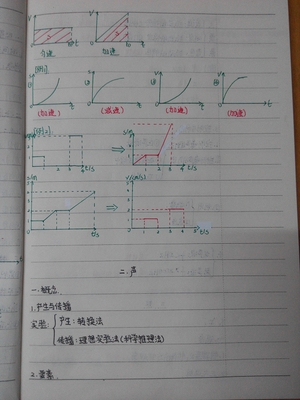 V V
t t
匀速 加速
[例1]
S S V V
t t t t
(加速) (减速) (加速) (加速)
[例2]
S/m
t/s t/s
S/m V(m/s)
t/s t/s
二.声
一.概念
1.产生与传播
实验: 产生: 转换法
传播: 理想实验法(科学推理法)
2.要素